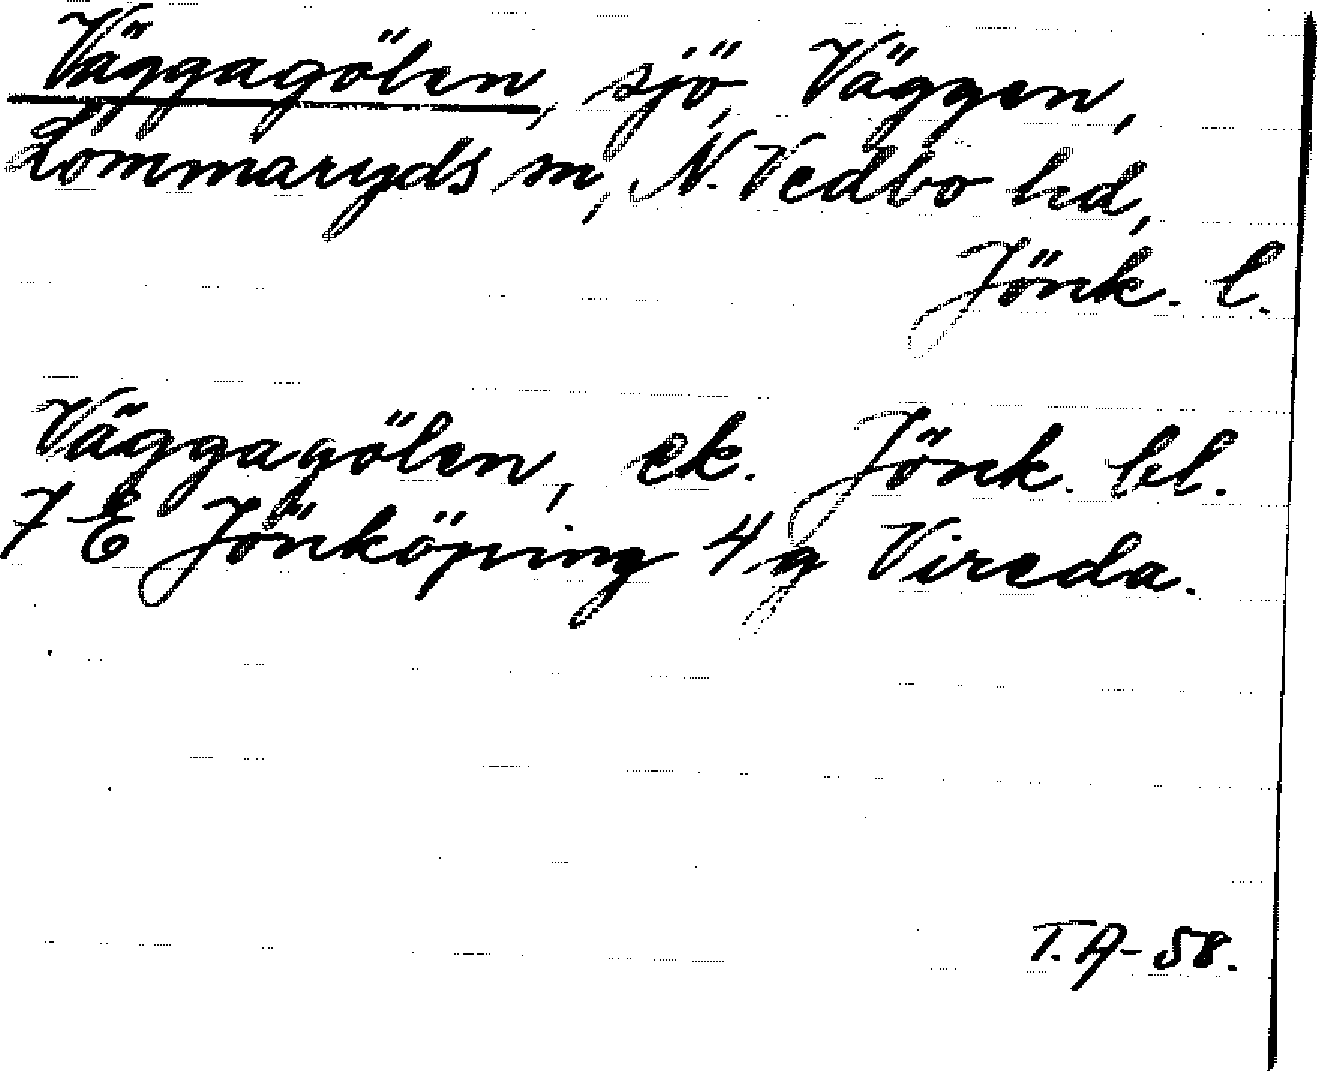 Väggagölen, sjö, Väggen,
Lommaryds sn, N. Vedbo hd,
Jönk. l.
Väggagölen, ek. Jönk. bl.
7 E Jönköping 4 g Vireda.
T.A-58.